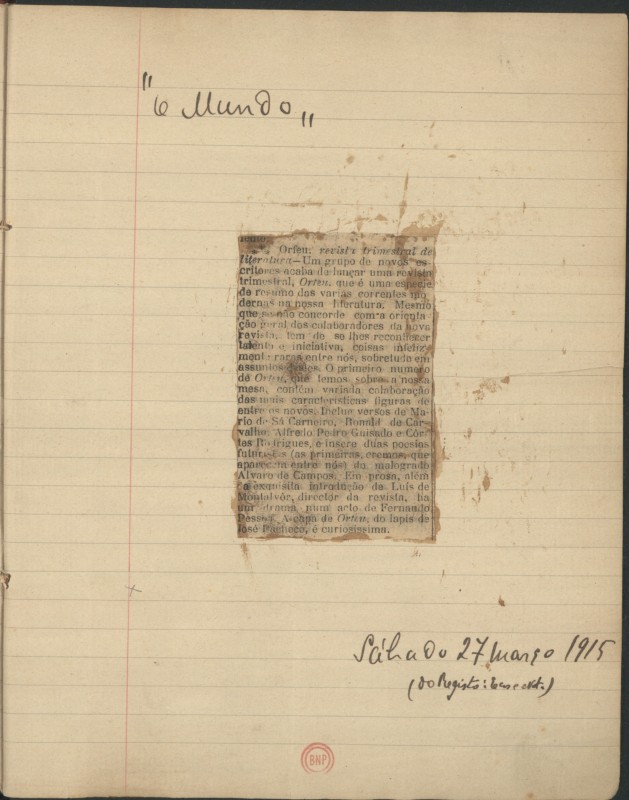 "O Mundo"
Orfeu, revista trimestral de
literatura—Um grupo de novos es-
critores acaba de lançar uma revista
trimestral, Orfeu, que é uma especie
de resumo das varias correntes mo-
dernas na nossa literatura. Mesmo
que se não concorde com a orienta-
ção geral dos colaboradores da nova
revista, tem de se lhes reconhecer
talento e iniciativa, coisas infeliz-
mente raras entre nós, sobretudo em
assuntos destes. O primeiro numero
de Orfeu, que temos sobre a nossa
mesa, contém variada colaboração
das mais caracteristicas figuras de
entre os novos. Inclue versos de Ma-
rio de Sá Carneiro, Ronald de Car-
valho, Alfredo Pedro Guisado e Côr-
tes Rodrigues, e insere duas poesias
futuristas (as primeiras, cremos, que
aparecem entre nós) do malogrado
Alvaro de Campos. Em prosa, além
da exquisita introdução de Luís de
Montalvôr, director da revista, ha
um drama num acto de Fernando
Pessoa. A capa de Orfeu, do lapis de
José Pacheco, é curiosissima.
Sábado 27 março 1915
(do Registo:
BNP